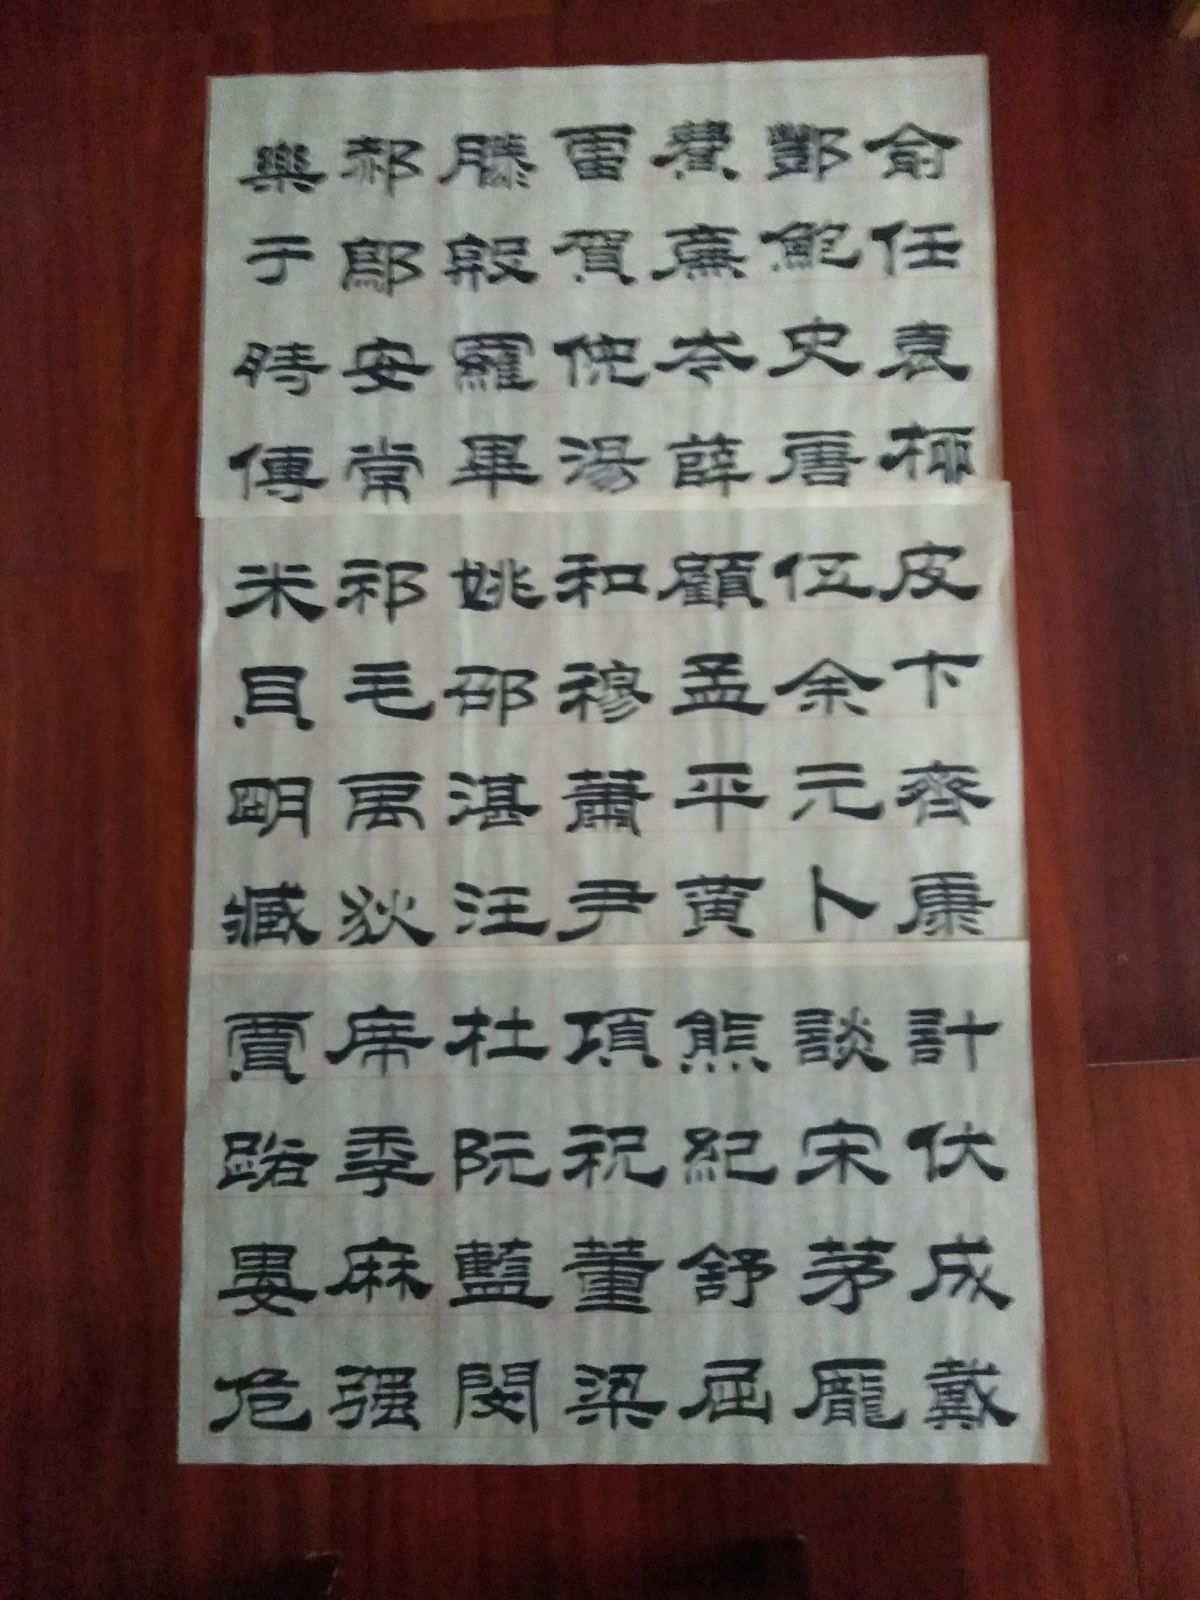 俞任袁柳
酆鮑史唐
費廉岑薛
雷賀倪湯
滕殷羅畢
郝鄔安常
樂于時傅
皮卞齊康
伍余元卜
顧孟平黃
和穆蕭尹
姚邵湛汪
祁毛禹狄
米貝明臧
計伏成戴
談宋茅龐
熊紀舒屈
項祝董梁
杜阮藍閔
席季麻强
賈路婁危